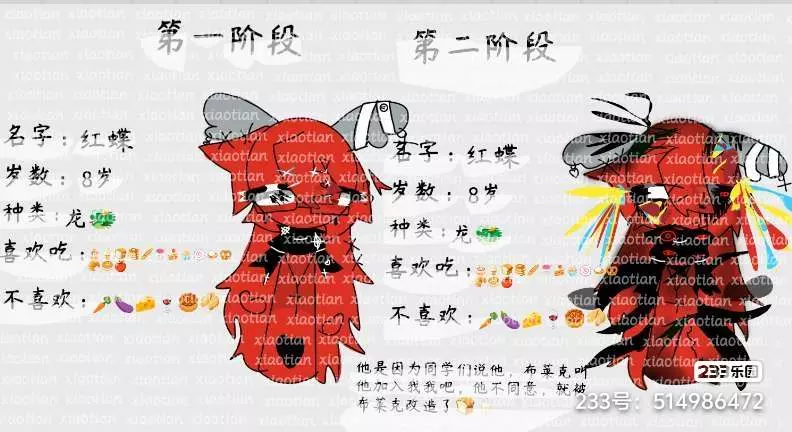 第一阶段
第二阶段
名字：红蝶
岁数：8岁
种类：龙
喜欢吃：
不喜欢：
名字：红蝶
岁数：8岁
种类：龙
喜欢吃：
不喜欢：
他是因为同学们说他，布莱克叫
他加入我我吧，他不同意，就被
布莱克改造了
233乐园
233号：514986472
xiaotian